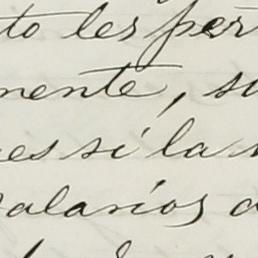 to les per
mente, s
es si la
alarios a